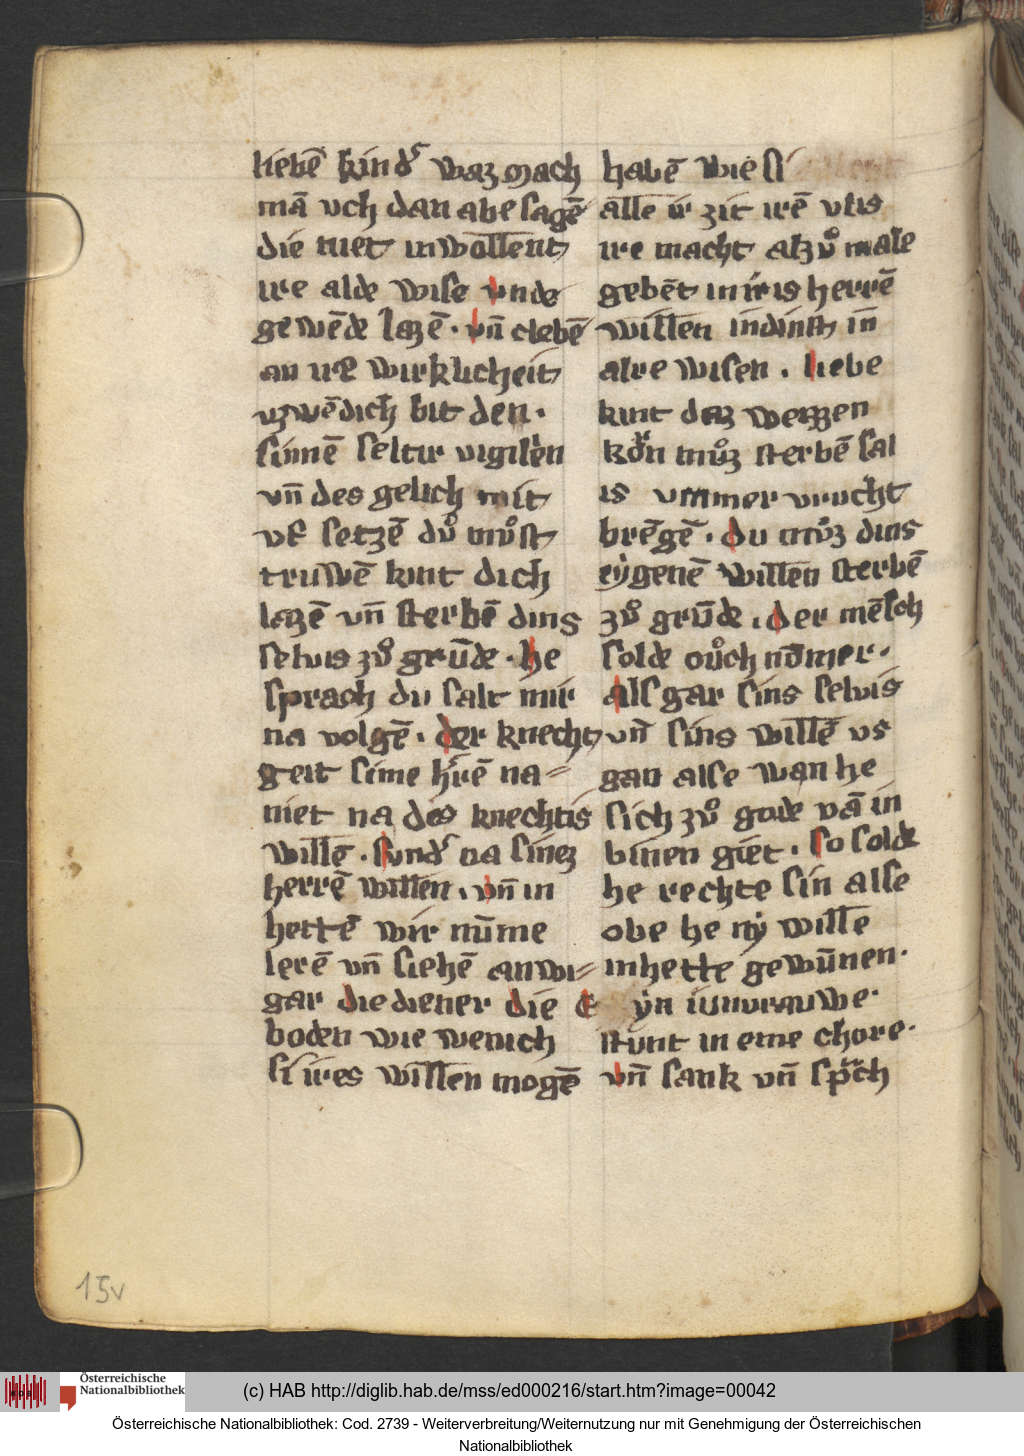 liebē kindˢ waz mach
mā vch dan abe sagē
die niet inwollent
ire alde wise vnde
gewēde lazē · vn̄ clebē
an irre wirklicheit
vzwēdich bit den ·
sinnē seltir vigilen
vn̄ des gelich mit
vf setzē dv̊ mv̊st
truwē kint dich
lazē vn̄ sterbē dins
selvis zv̊ grūde · he
sprach du salt mir
na volgē · der knecht
geit sime hˢrē na =
niet na des knechtis
willē · sundˢ na sinez
herrē willen · vn̄ in
hettē wir nūme
lerē vn̄ siehē anwi =
gar die diener die
boden wie wenich
si ires willen mogē
habē wie si
alle ir zit irē vlis
ire macht alzv̊ male
gebēt in iris herrē
willen indinst in̄
alre wisen · liebe
kint daz weizzen
korn mv̊z sterbē sal
is vmmer vrucht
brēgē · du mv̊z dins
eẏgenē willen sterbē
zv̊ grūde · der mēsch
solde ov̊ch nūmer ·
als gar sins selvis
vn̄ sins willē vs
gan alse wan he
sich zv̊ gode vā in
binen giet · so solde
he rechte sin alse
obe he nẏ wille
inhette gewūnen ·
Eẏn iuncvrauwe ·
stunt in eme chore ·
vn̄ sank vn̄ sprach
15v
Österreichische
Nationalbibliothek
(c) HAB http://diglib.hab.de/mss/ed000216/start.htm?image=00042
Österreichische Nationalbibliothek: Cod. 2739 - Weiterverbreitung/Weiternutzung nur mit Genehmigung der Österreichischen
Nationalbibliothek